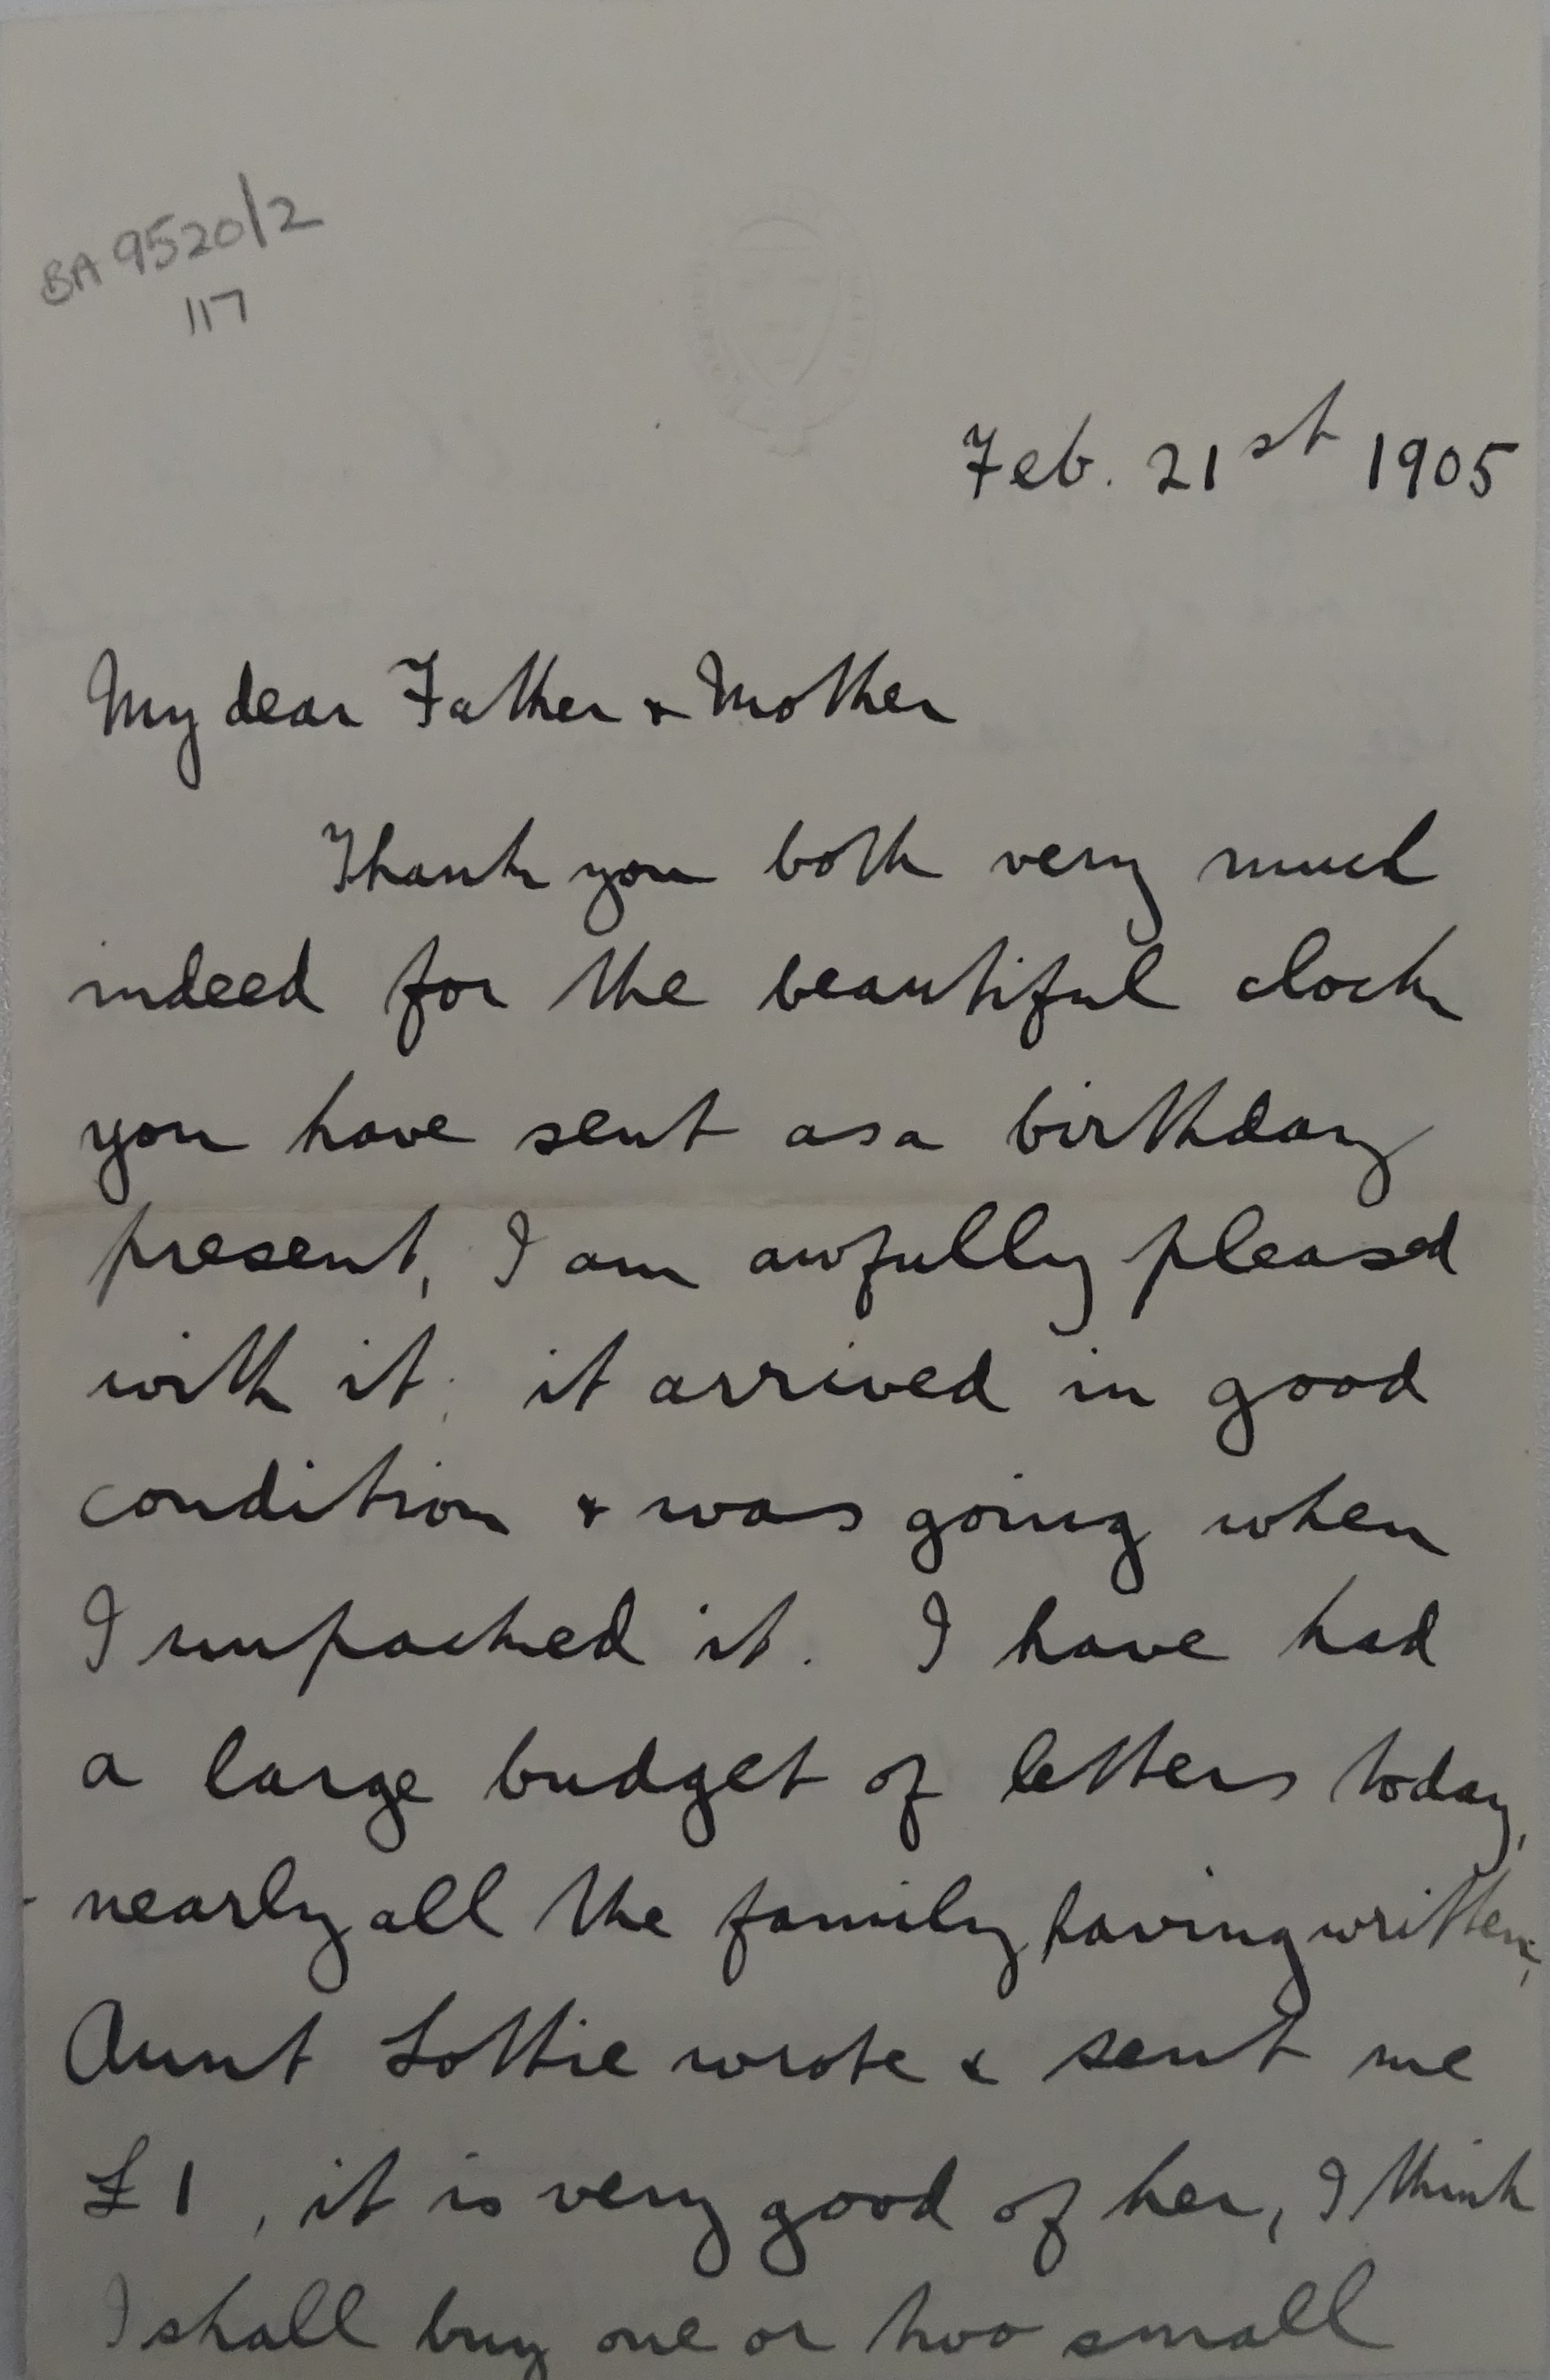 BA 9520/2
117
Feb. 21st 1905
My dear Father & Mother
Thank you both very much
indeed for the beautiful clock
you have sent as a birthday
present, I am awfully pleased
with it; it arrived in good
condition & was going when
I unpacked it. I have had
a large budget of letters today,
nearly all the family having written;
Aunt Lottie wrote & sent me
£1, it is very good of her, I think
I shall buy one or two small